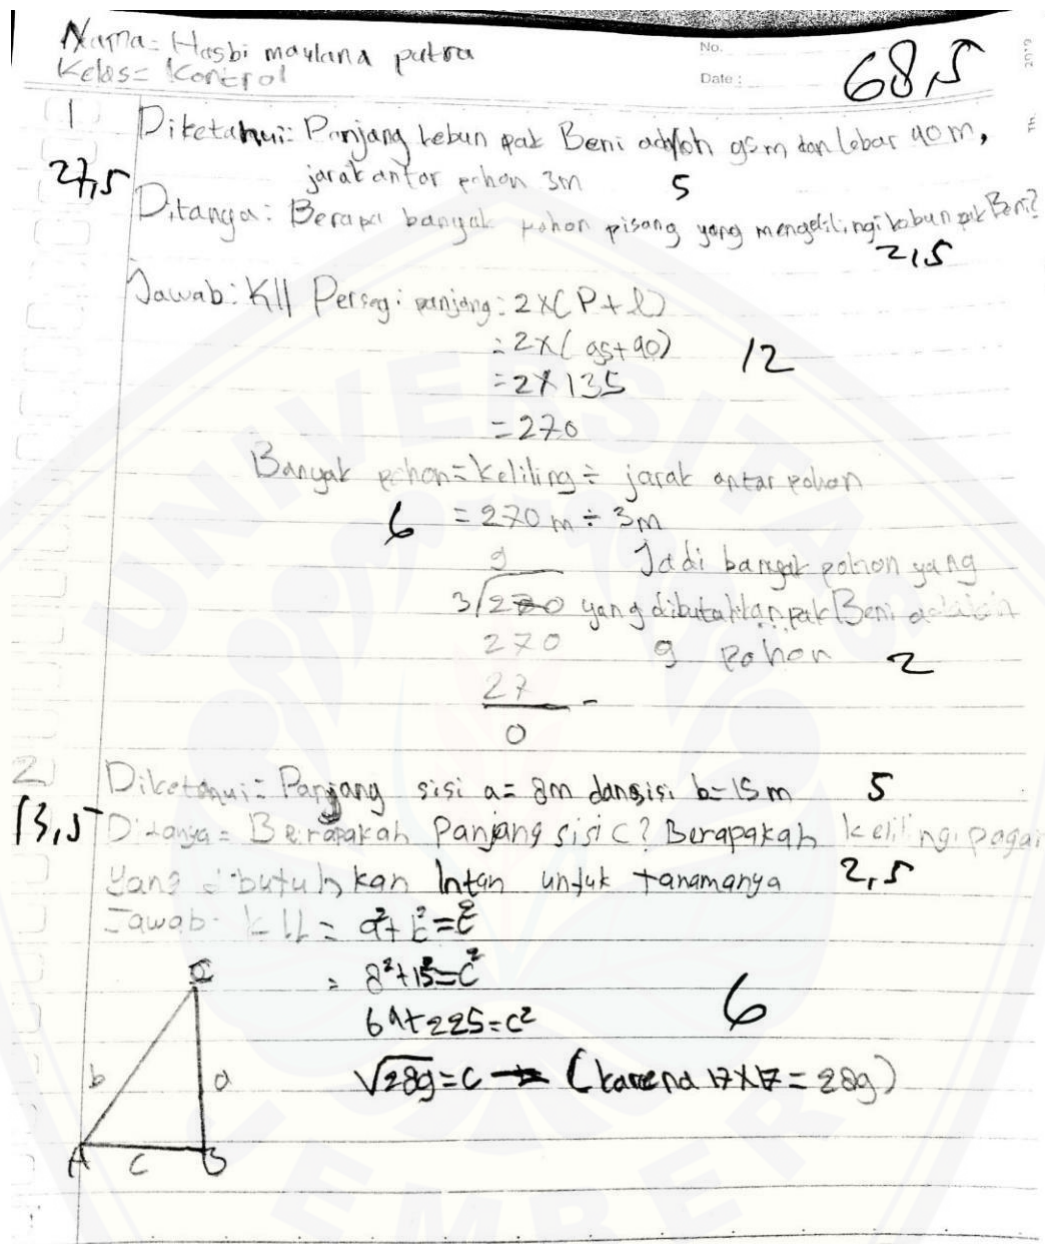 Nama= Hasbi maulana putra
No.
68,5
2019
Kelas= Kontrol
Date :
1 Diketahui: Panjang kebun pak Beni adalah 95m dan lebar 40m,
27,5 jarak antar pohon 3m 5
Ditanya: Berapa banyak pohon pisang yang mengelilingi kebun pak Beni?
2,5
Jawab: Kll Persegi panjang: 2x(P+l)
= 2x(95+40) 12
=2x135
=270
Banyak pohon=keliling ÷ jarak antar pohon
6 =270m ÷ 3m
9 Jadi banyak pohon yang
3/270 yang dibutuhkan pak Beni adalah
270 9 Pohon 2
27 -
0
2 Diketahui= Panjang sisi a= 8m dan sisi b=15m 5
13,5 Ditanya= Berapakah Panjang sisi c? Berapakah keliling pagar
yang dibutuhkan Intan untuk tanamanya 2,5
Jawab: kll = a²+b²=c²
= 8²+15²=c²
64+225=c² 6
√289=c (karena 17x17=289)
C
b a
A C B
UNIVERSITAS
JEMBER